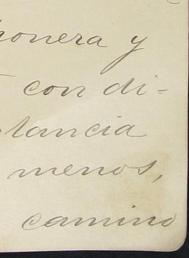 ponera y
con di-
tancia
menos,
camino